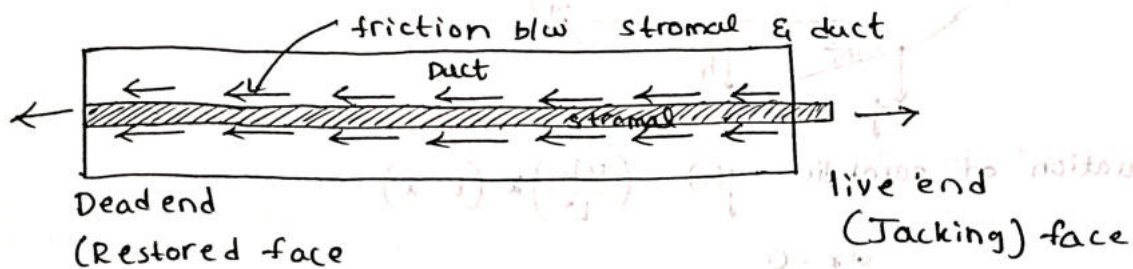 friction b/w stromal & duct
Duct
stromal
Dead end
(Restored face
live end
(Jacking) face